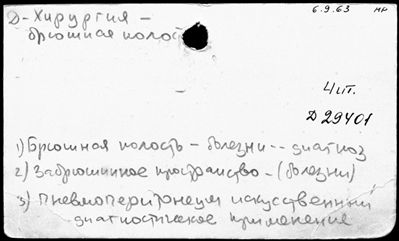 6.9.63 МР
Д-Хирургия -
брюшная полос
4 шт.
Д 29401
1) Брюшная полость - болезни -- диагноз
2) Забрюшинное пространство - (болезни)
3) Пневмоперитонеум искусственный
диагностическое применение